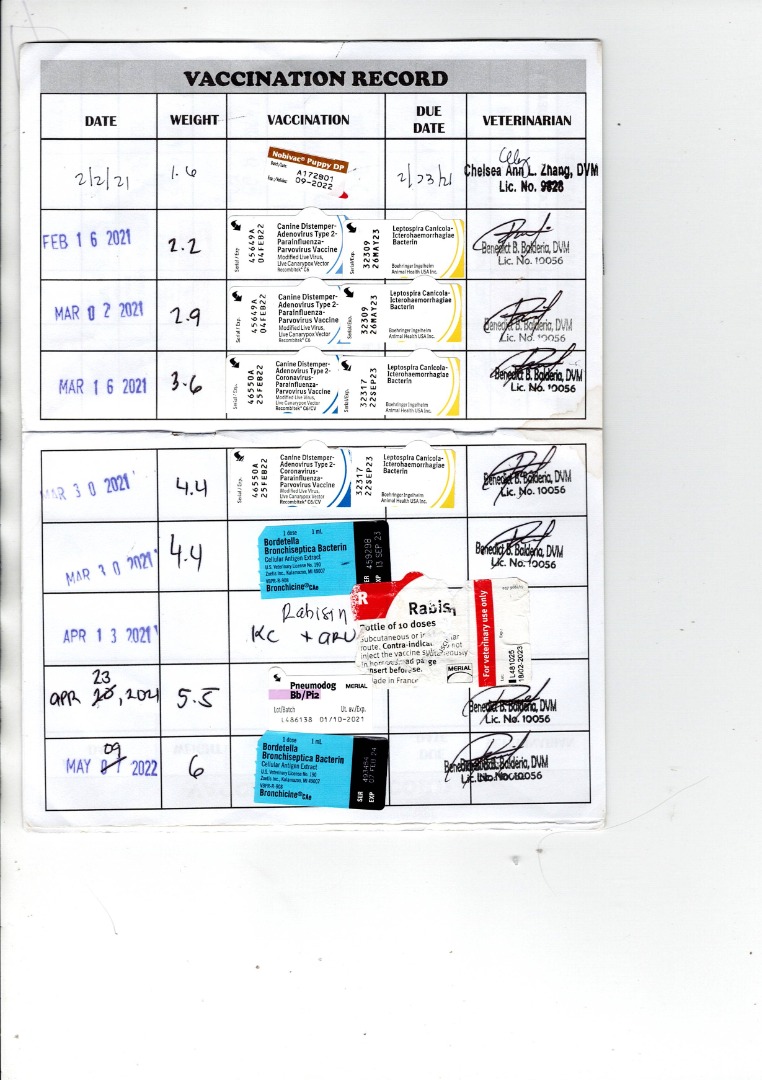 VACCINATION RECORD
DATE WEIGHT VACCINATION DUE DATE VETERINARIAN
2/2/21 1.6
Nobivac® Puppy DP
A172B01
09-2022
2/23/21
Chelsea Ann L. Zhang, DVM
Lic. No.
FEB 16 2021 2.2
Serial / Exp.
45649A
04FEB22
Canine Distemper-
Adenovirus Type 2-
Parainfluenza-
Parvovirus Vaccine
Modified Live Virus,
Live Canarypox Vector
Recombitek® C6
Serial/Exp.
32309
26MAY23
Leptospira Canicola-
Icterohaemorrhagiae
Bacterin
Boehringer Ingelheim
Animal Health USA Inc.
Benedict B. Balderia, DVM
Lic. No. 10056
MAR 02 2021 2.9
Serial / Exp.
45649A
04FEB22
Canine Distemper-
Adenovirus Type 2-
Parainfluenza-
Parvovirus Vaccine
Modified Live Virus,
Live Canarypox Vector
Recombitek® C6
Serial/Exp.
32309
26MAY23
Leptospira Canicola-
Icterohaemorrhagiae
Bacterin
Boehringer Ingelheim
Animal Health USA Inc.
Benedict B. Balderia, DVM
Lic. No. 10056
MAR 16 2021 3.6
Serial / Exp.
46550A
25FEB22
Canine Distemper-
Adenovirus Type 2-
Coronavirus-
Parainfluenza-
Parvovirus Vaccine
Modified Live Virus,
Live Canarypox Vector
Recombitek® C6/CV
Serial/Exp.
32317
22SEP23
Leptospira Canicola-
Icterohaemorrhagiae
Bacterin
Boehringer Ingelheim
Animal Health USA Inc.
Benedict B. Balderia, DVM
Lic. No. 10056
MAR 30 2021 4.4
Serial / Exp.
46550A
25FEB22
Canine Distemper-
Adenovirus Type 2-
Coronavirus-
Parainfluenza-
Parvovirus Vaccine
Modified Live Virus,
Live Canarypox Vector
Recombitek® C6/CV
Serial/Exp.
32317
22SEP23
Leptospira Canicola-
Icterohaemorrhagiae
Bacterin
Boehringer Ingelheim
Animal Health USA Inc.
Benedict B. Balderia, DVM
Lic. No. 10056
MAR 30 2021 4.4
1 dose 1 mL
Bordetella
Bronchiseptica Bacterin
Cellular Antigen Extract
U.S. Veterinary License No. 190
Zoetis Inc., Kalamazoo, MI 49007
VSPR-R-908
Bronchicine®CAe
SER 459298
EXP 13 SEP 23
Benedict B. Balderia, DVM
Lic. No. 10056
APR 13 2021
Rabisin
KC + ARV
R Rabisi
Bottle of 10 doses
Subcutaneous or
route. Contra-indica not
inject the vaccine
insert before
Made in France
MERIAL
For veterinary use only
L481025
18/02/2023
23
APR 20, 2021 5.5
Pneumodog MERIAL
Bb/Pi2
Lot/Batch Ut. av/Exp.
L486138 01/10-2021
Benedict B. Balderia, DVM
Lic. No. 10056
09
MAY 07 2022 6
1 dose 1 mL
Bordetella
Bronchiseptica Bacterin
Cellular Antigen Extract
U.S. Veterinary License No. 190
Zoetis Inc., Kalamazoo, MI 49007
VSPR-R-908
Bronchicine®CAe
SER
EXP 07 FEB 24
Balderia, DVM
Lic. No. 10056